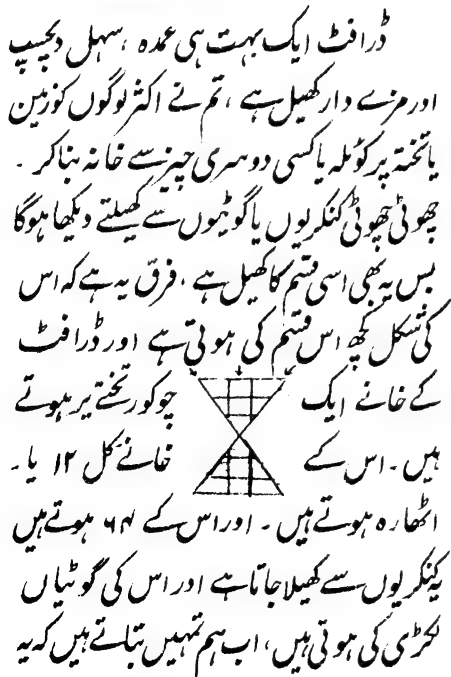 ڈرافٹ ایک بہت ہی عمدہ ، سہل دلچسپ
اور مزے دار کھیل ہے ، تم نے اکثر لوگوں کو زمین
یا تختہ پر کوئلہ یا کسی دوسری چیز سے خانہ بنا کر ۔
چھوٹی چھوٹی کنکریوں یا گوٹیوں سے کھیلتے دیکھا ہوگا
بس یہ بھی اسی قسم کا کھیل ہے ، فرق یہ ہے کہ اس
کی شکل کچھ اس قسم کی ہوتی ہے اور ڈرافٹ
کے خانے ایک چوکور تختے پر ہوتے
ہیں ۔ اس کے خانے کل ۱۲ یا ۔
اٹھارہ ہوتے ہیں ۔ اور اس کے ۶۴ ہوتے ہیں
یہ کنکریوں سے کھیلا جاتا ہے اور اس کی گوٹیاں
لکڑی کی ہوتی ہیں ، اب ہم تمہیں بتاتے ہیں کہ یہ